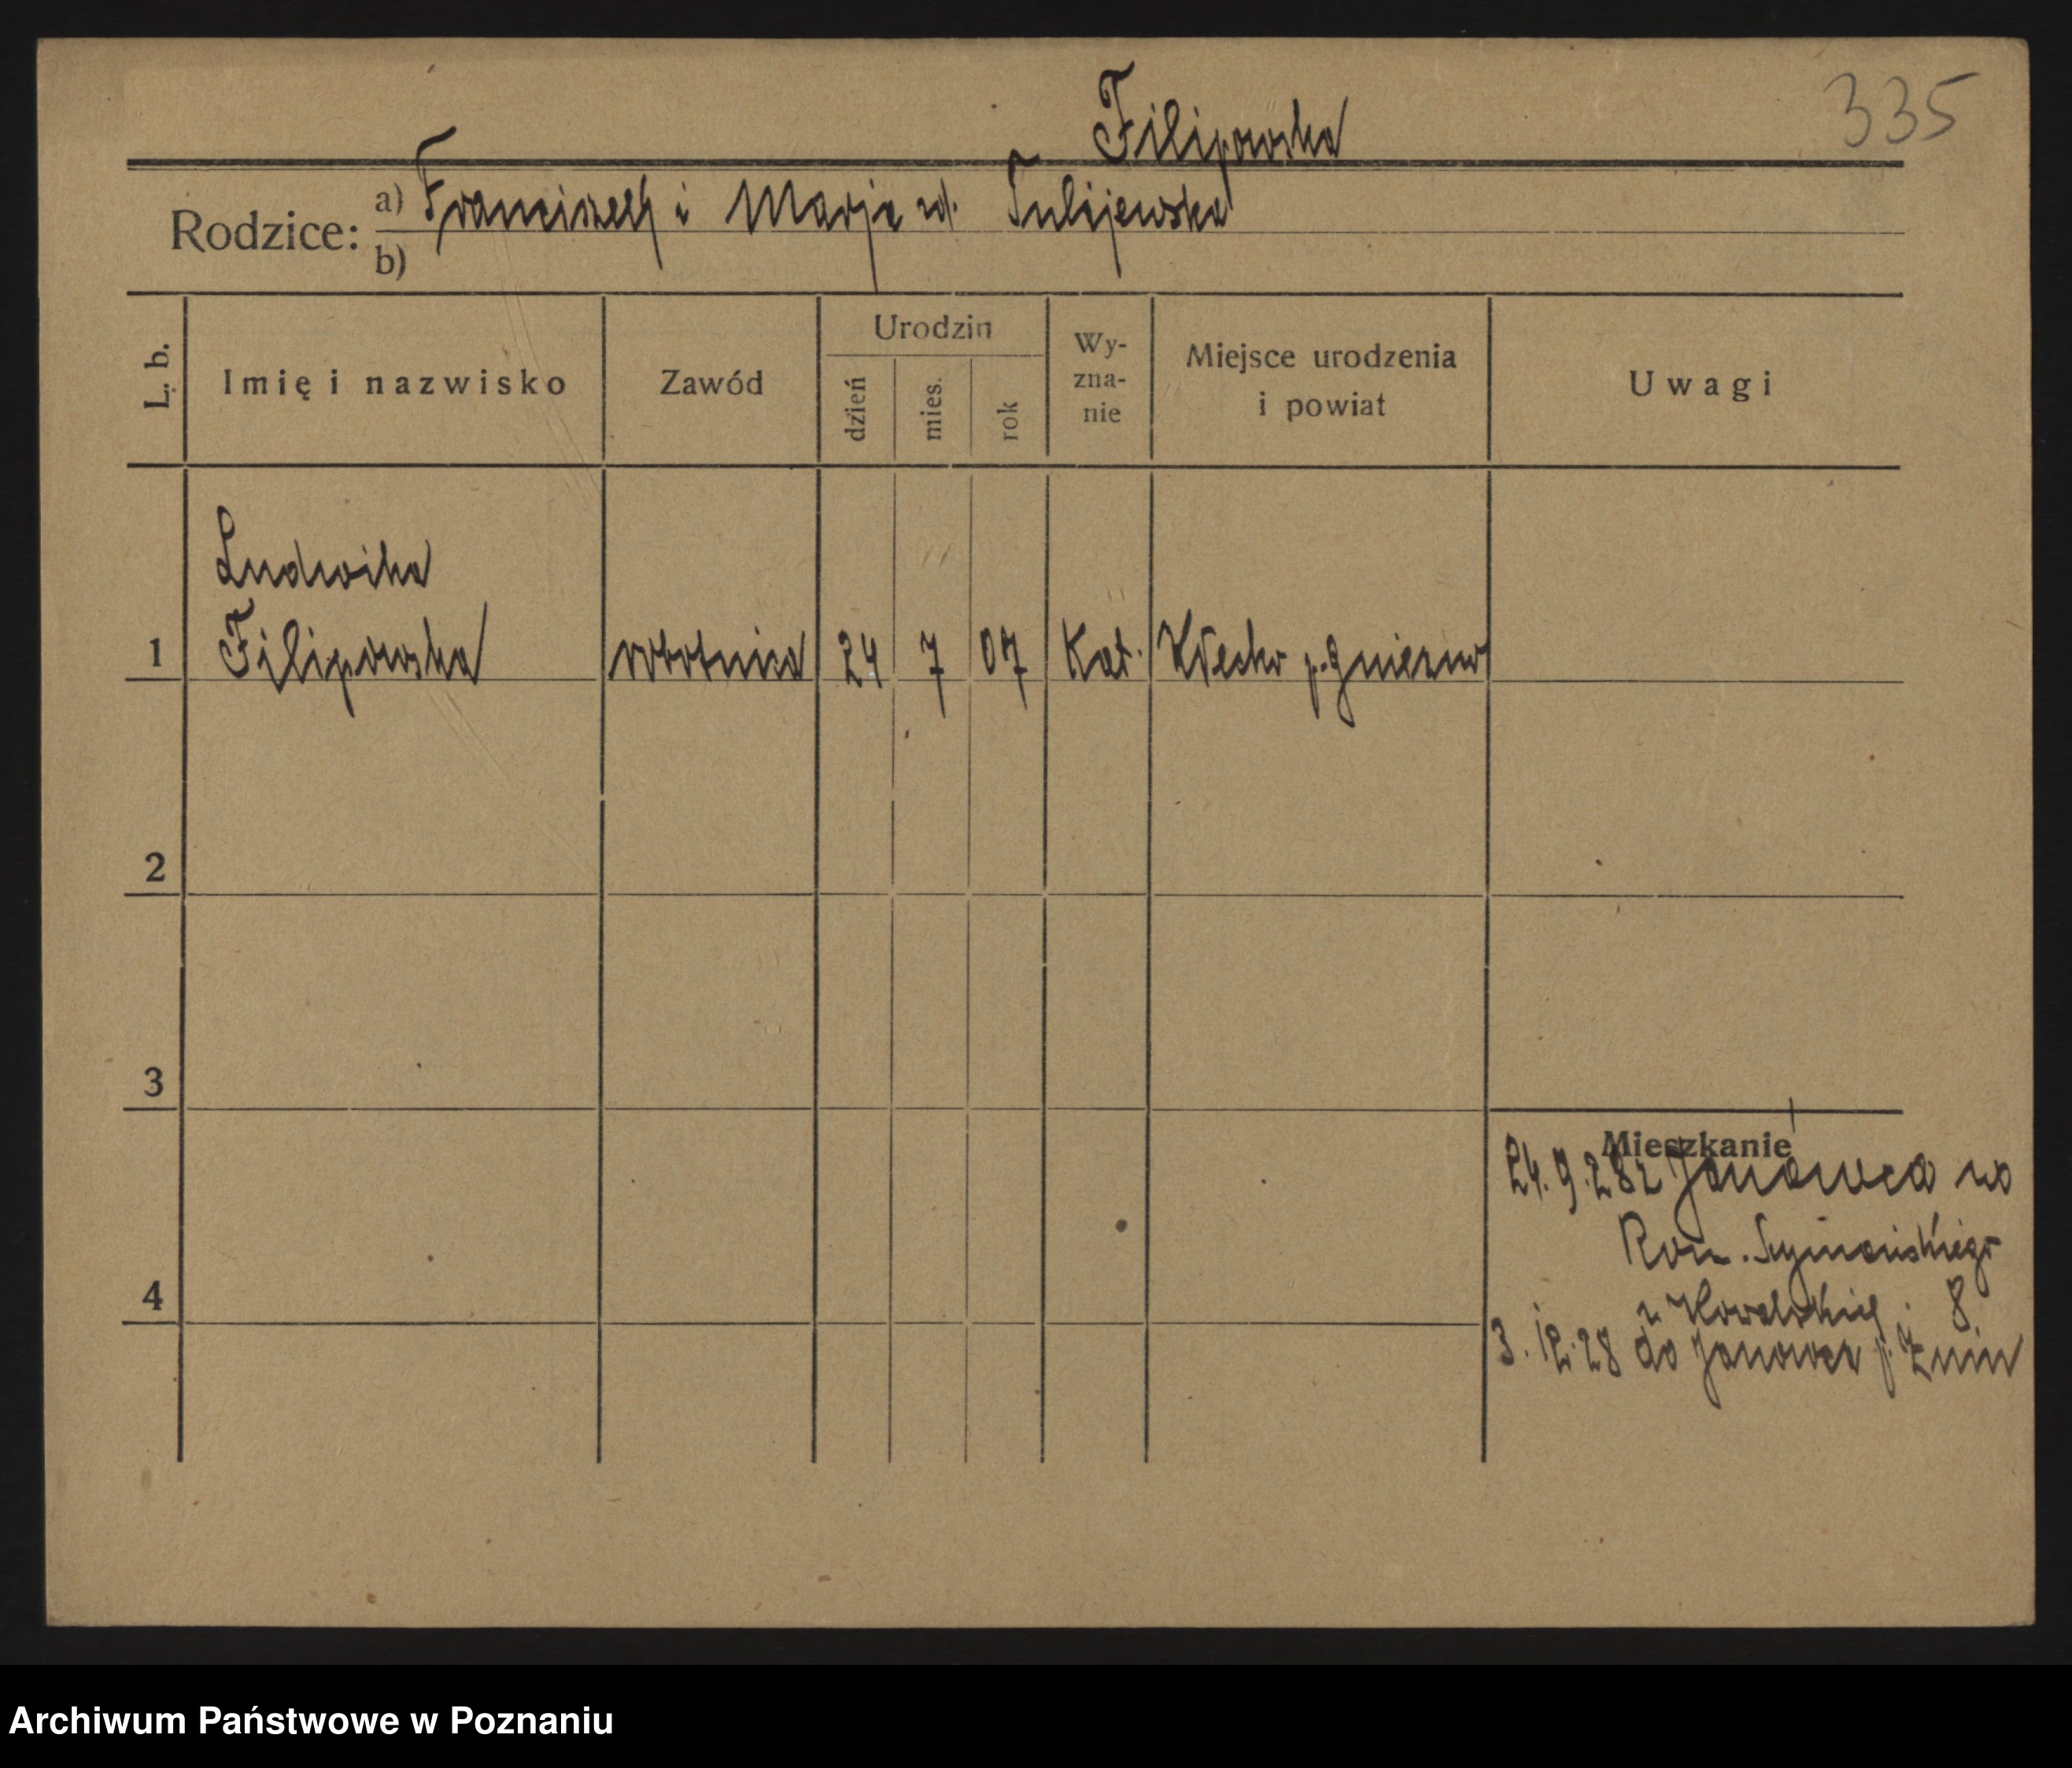 335
Filipowska
Rodzice: a) Franciszek i Marja rd. Tulijewska
b)
L. b.
Imię i nazwisko
Zawód
Urodzin
dzień
mies.
rok
Wy-
zna-
nie
Miejsce urodzenia
i powiat
Uwagi
Ludwika
1 Filipowska robotnica 24 7 07 Kat. Kłecko p. Gniezno
2
3
Mieszkanie
24. 9. 28 z Janowca
Rom. Szymańskiego
4
8
3. 12. 28 do Janowca p. Żnin
Archiwum Państwowe w Poznaniu